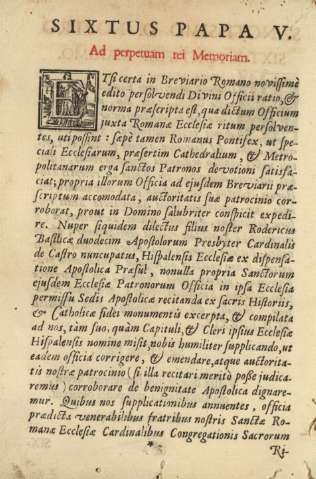 SIXTUS PAPA V.
Ad perpetuam rei Memoriam.
ETsi certa in Breviario Romano novissimè
edito persolvendi Divini Officii ratio, &
norma præscripta est, qua dictum Officium
juxta Romanæ Ecclesiæ ritum persolven-
tes, uti possint: sæpè tamen Romanus Pontifex, ut spe-
ciali Ecclesiarum, præsertim Cathedralium, & Metro-
politanarum erga sanctos Patronos devotioni satisfa-
ciat; propria illorum Officia ad ejusdem Breviarii præ-
scriptum accomodata, auctoritatis suæ patrocinio cor-
roborat, prout in Domino salubriter conspicit expedi-
re. Nuper siquidem dilectus filius noster Rodericus
Basilicæ duodecim Apostolorum Presbyter Cardinalis
de Castro nuncupatus, Hispalensis Ecclesiæ ex dispensa-
tione Apostolica Præsul, nonnulla propria Sanctorum
ejusdem Ecclesiæ Patronorum Officia in ipsa Ecclesia
permissu Sedis Apostolicæ recitanda ex sacris Historiis,
& Catholicæ fidei monumentis excerpta, & compilata
ad nos, tàm suo, quàm Capituli, & Cleri ipsius Ecclesiæ
Hispalensis nomine misit, nobis humiliter supplicando, ut
eadem officia corrigere, & emendare, atque auctorita-
tis nostræ patrocinio (si illa recitari meritò posse judica-
remus) corroborare de benignitate Apostolica dignare-
mur. Quibus nos supplicationibus annuentes, officia
prædicta venerabilibus fratribus nostris Sanctæ Ro-
manæ Ecclesiæ Cardinalibus Congregationis Sacrorum
*
Ri-